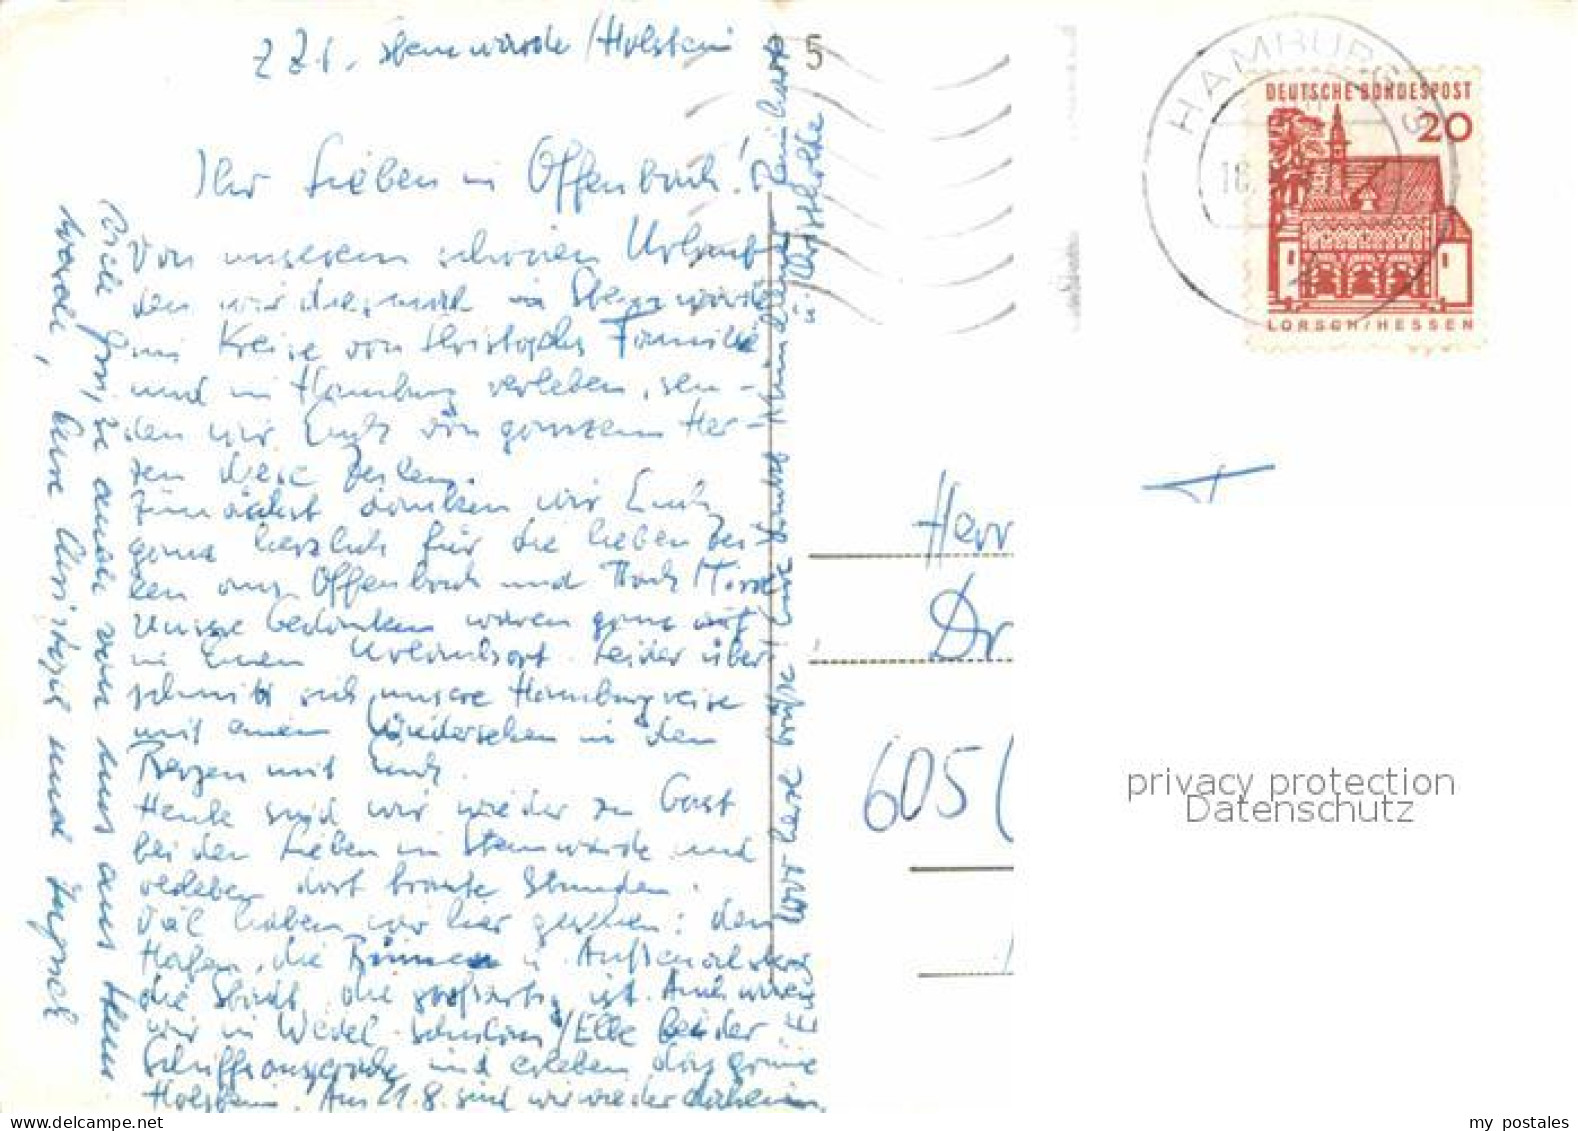 z.Zt. Stemwarde/Holstein
Ihr Lieben in Offenbach!
Von unserem schönen Urlaub
den wir diesmal in Stemwarde
im Kreise von Christophs Familie
und in Hamburg verleben, sen-
den wir Euch von ganzem Her-
zen diese Zeilen.
Zunächst danken wir Euch
ganz herzlich für die lieben Zei-
len aus Offenbach und
Unsere Gedanken waren ganz auf
in Euren Urlaubsort. Leider über-
schnitt sich unsere Hamburgreise
mit einem Wiedersehen in den
Bergen mit Euch.
Heute sind wir wieder zu Gast
bei den Lieben in Stemwarde und
verleben dort Stunden.
Viel haben wir hier gesehen: den
Hafen, die Binnen u. Außenalster
die Stadt, die großartig ist. Auch waren
wir in Wedel-Schulau/Elbe bei der
Schiffsansage und erleben das grüne
Holstein. Am 21.8. sind wir wieder daheim.
Euch
u. Christholde
Viele Grüße auch von
Eure Christoph und
35
HAMBURG
18.
DEUTSCHE BUNDESPOST
20
LORSCH/HESSEN
Herr
Dr
605(
privacy protection
Datenschutz
www.delcampe.net
my_postales